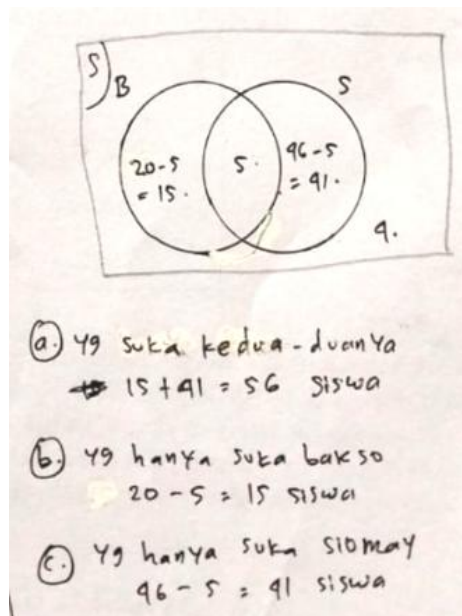 S
B S
20-5
= 15.
5.
46-5
= 41.
4.
a.) yg suka kedua-duanya
15 + 41 = 56 siswa
b.) yg hanya suka bakso
20 - 5 = 15 siswa
c.) yg hanya suka siomay
46 - 5 = 41 siswa